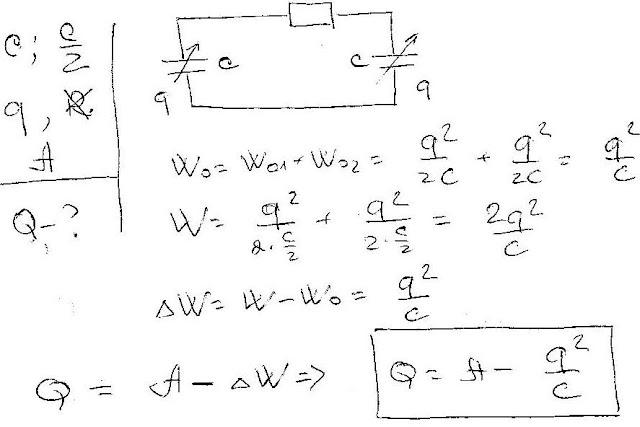 C; C/2
q, R
A
Q-?
C C
q q
W₀ = W₀₁ + W₀₂ = q²/2C + q²/2C = q²/C
W = q²/(2·C/2) + q²/(2·C/2) = 2q²/C
ΔW = W - W₀ = q²/C
Q = A - ΔW => Q = A - q²/C